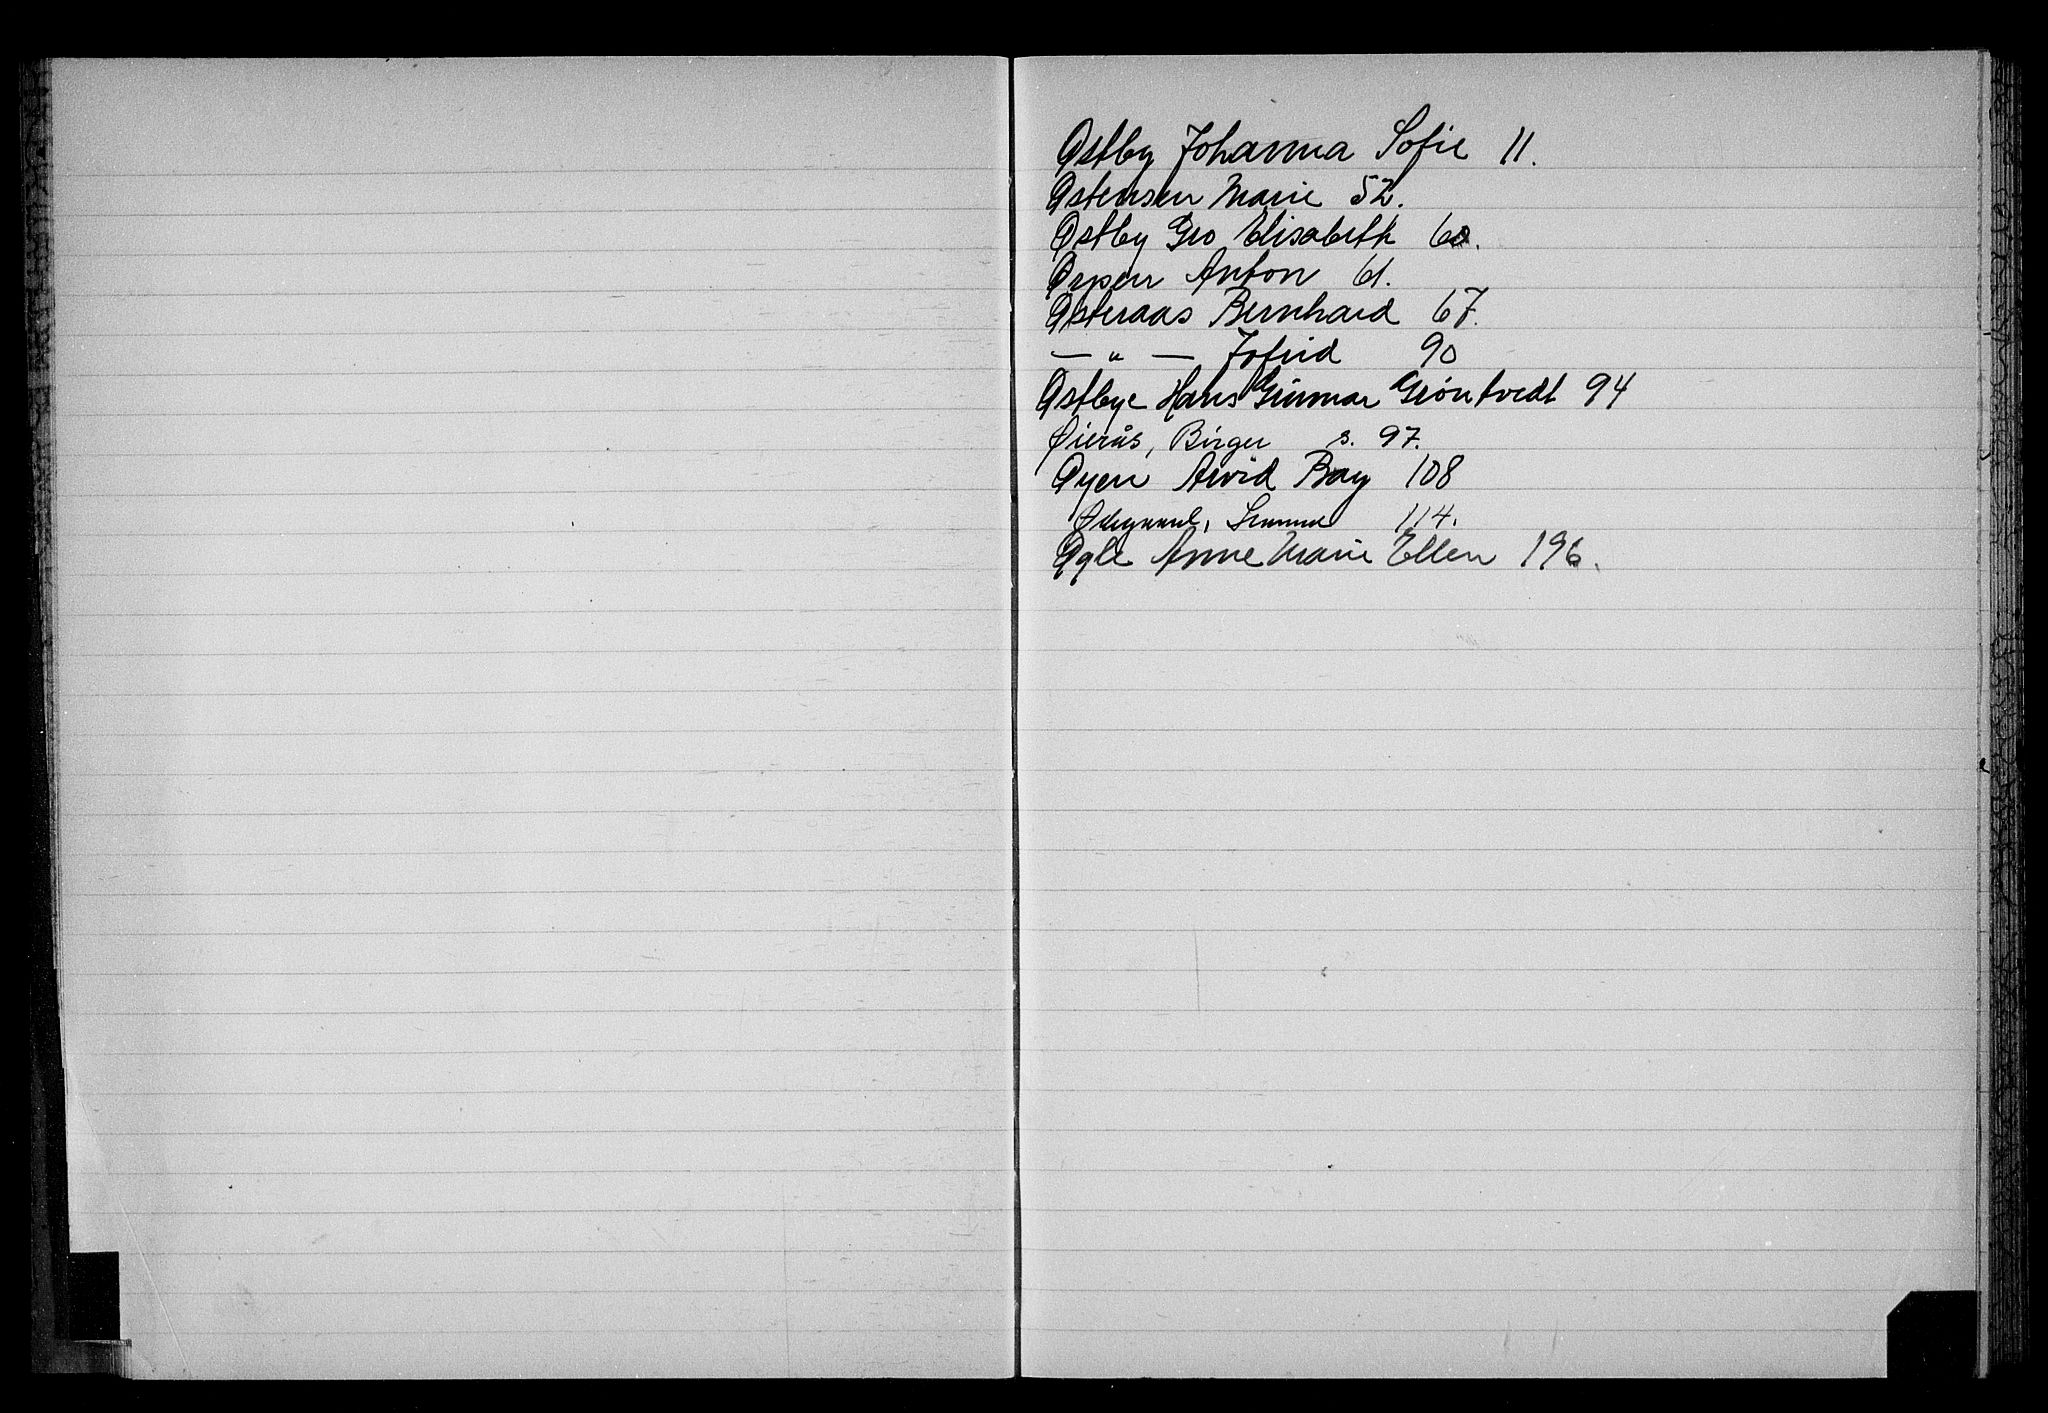 Østby Johanna Sofie 11.
Østensen Marie 52.
Østby Gro Elisabeth 60.
Anton 61.
Østeraas Bernhard 67.
— " — Jofrid 90
Østbye Hans Gunnar Gröntvedt 94
Øierås, Birger s. 97.
Øyen Arvid Ray 108
Ødegaard, 114.
Øgle Anne Marie Ellen 196.